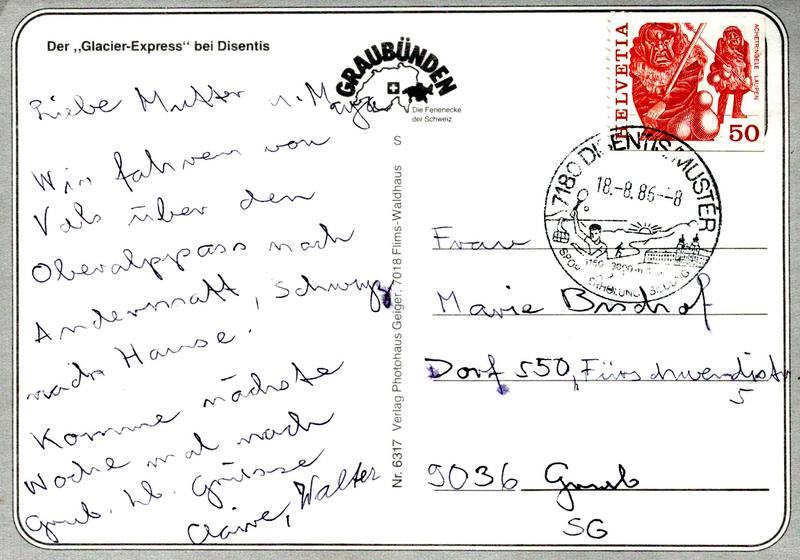 Der „Glacier-Express“ bei Disentis
GRAUBÜNDEN
Die Ferienecke
der Schweiz
Liebe Mutter u.
Wir fahren von
Vals über den
Oberalppass nach
Andermatt, Schwyz
nach Hause.
Komme nächste
Woche mal nach
Grub. Lb. Grüsse
Claire, Walter
S
Nr. 6317 Verlag Photohaus Geiger, 7018 Flims-Waldhaus
HELVETIA
ACHETRINGELE LAUPEN
50
7180 DISENTIS/MUSTER
18.-8.86--8
1150 3000 m
SPORT ERHOLUNG BILDUNG
Frau
Marie Bischof
Dorf 550, Fürschwendistr.
5
9036 Grub
SG